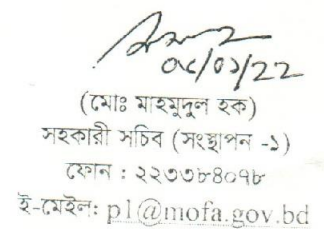 ০৫/০১/22
(মোঃ মাহমুদুল হক)
সহকারী সচিব (সংস্থাপন -১)
ফোন : ২২৩৩৮৪০৭৮
ই-মেইল: p1@mofa.gov.bd